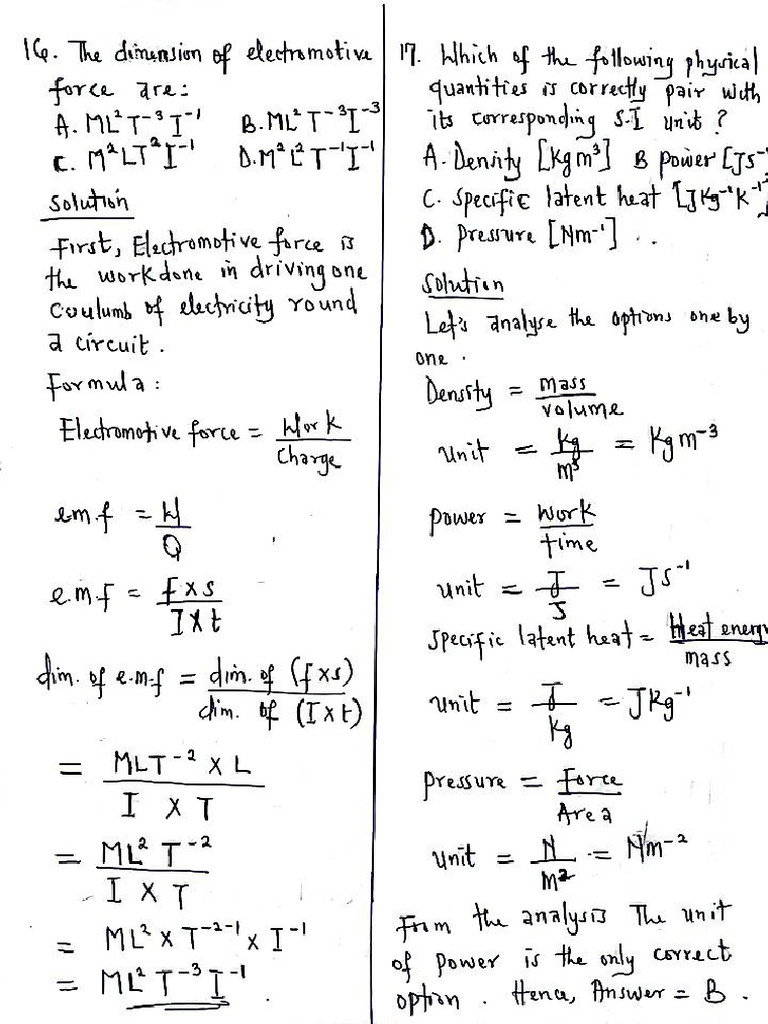 16. The dimension of electromotive
force are:
A. ML²T⁻³I⁻¹ B. ML²T⁻³I⁻³
C. M²LT²I⁻¹ D. M²L²T⁻¹I⁻¹
Solution
First, Electromotive force is
the workdone in driving one
Coulumb of electricity round
a circuit.
Formula:
Electromotive force = Work
Charge
e.m.f = W
Q
e.m.f = f x s
I x t
dim. of e.m.f = dim. of (f x s)
dim. of (I x t)
= MLT⁻² x L
I x T
= ML² T⁻²
I x T
= ML² x T⁻²⁻¹ x I⁻¹
= ML² T⁻³ I⁻¹
17. Which of the following physical
quantities is correctly pair with
its corresponding S.I unit?
A. Density [Kgm³] B power [Js⁻
C. Specific latent heat [JKg⁻¹K⁻¹]
D. Pressure [Nm⁻¹] ..
Solution
Let's analyse the options one by
one.
Density = mass
volume
Unit = kg = Kgm⁻³
m³
power = Work
time
Unit = J = Js⁻¹
s
Specific latent heat = Heat energy
mass
Unit = J = Jkg⁻¹
kg
Pressure = Force
Area
Unit = N = Nm⁻²
m²
From the analysis The unit
of power is the only correct
option. Hence, Answer = B.